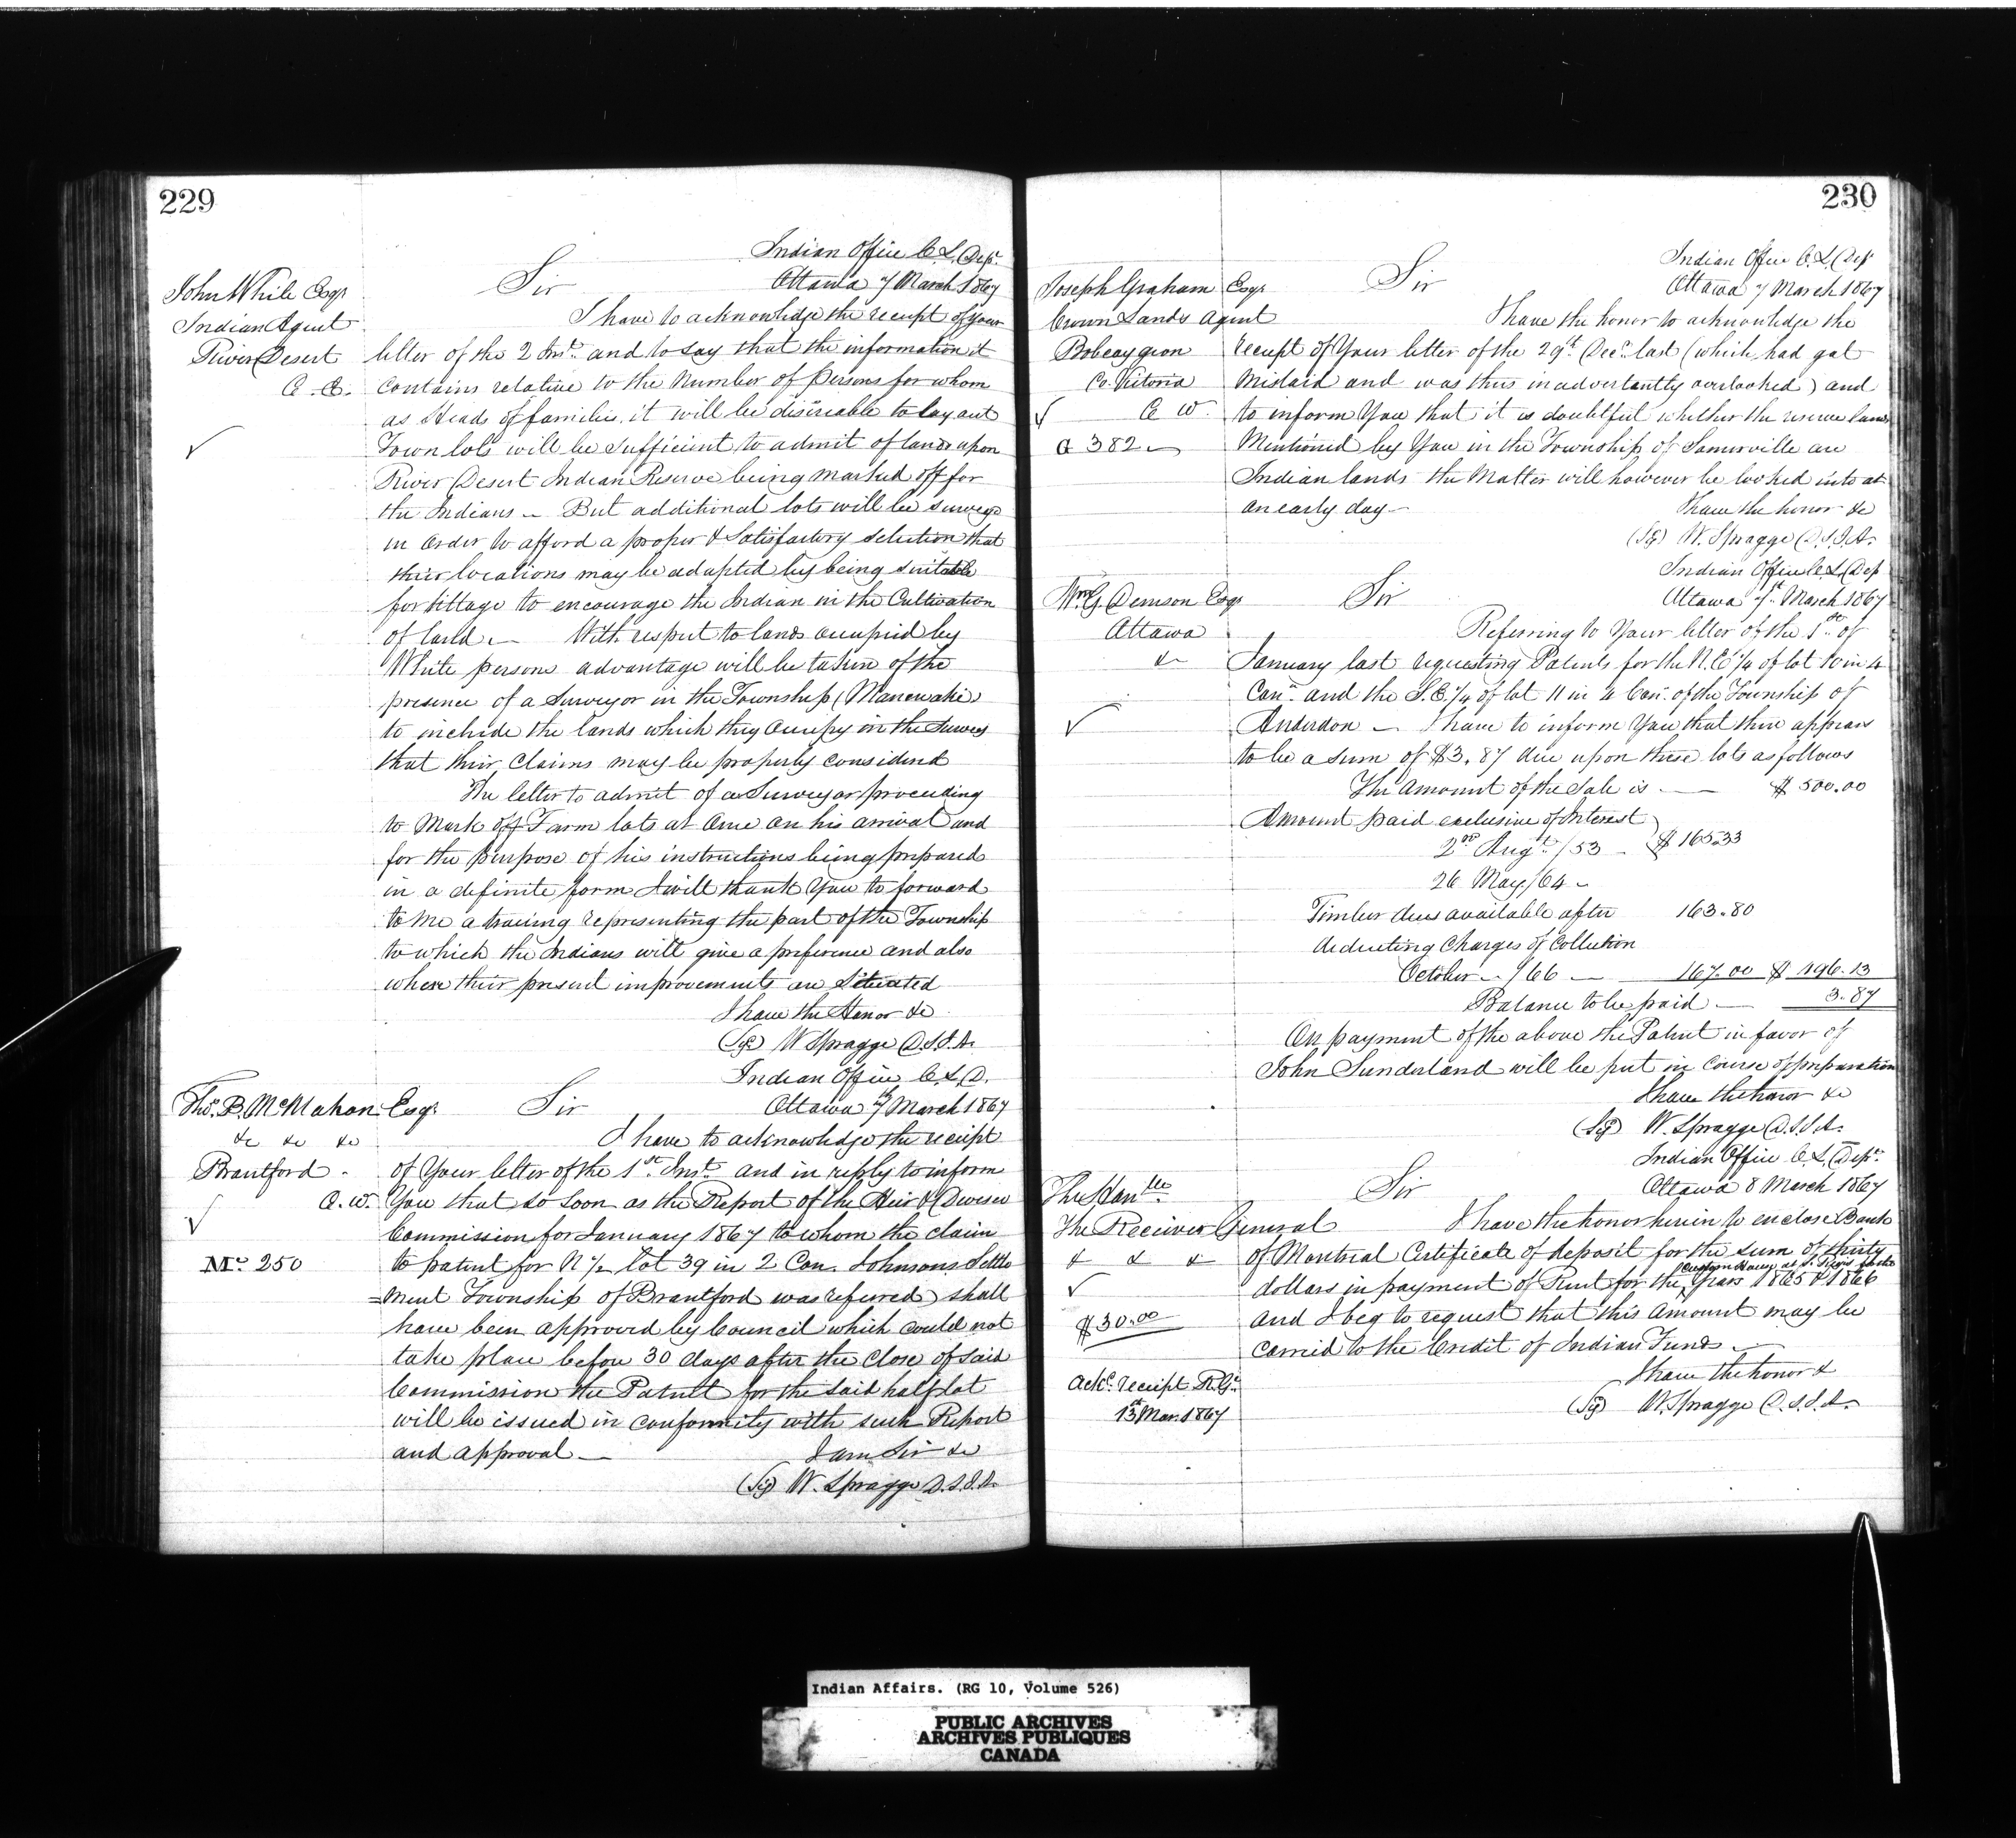 229
Indian Office C.L. Dept.
John White Esqr Sir Ottawa 7 March 1867
Indian Agent I have to acknowledge the receipt of your
River Desert letter of the 2 Inst. and to say that the information it
C. E. contains relative to the Number of Persons for whom
as Heads of families it will be desireable to lay out
Town lots will be sufficient to admit of lands upon
River Desert Indian Reserve being marked off for
the Indians – But additional lots will be surveyd
in order to afford a proper & Satisfactory selection that
their locations may be adapted by being suitable
for tillage to encourage the Indian in the Cultivation
of land. – With respect to lands occupied by
White persons advantage will be taken of the
presence of a Surveyor in the Township (Manewaki)
to include the lands which they occupy in the Survey
that their claims may be properly considered
The letter to admit of a Surveyor proceeding
to Mark off Farm lots at Once on his arrival and
for the purpose of his instructions being prepared
in a definite form I will thank You to forward
to Me a tracing representing the part of the Township
to which the Indians will give a preference and also
where their present improvements are Situated
I have the Honor &c
(Sgd) W Spragge D.S.I.A.
Indian Office C.L.D.
Thos. B. McMahon Esqr. Sir Ottawa 7th March 1867
&c &c &c I have to acknowledge the receipt
Brantford. of Your letter of the 1st Inst. and in reply to inform
C.W. You that so soon as the Report of the Heir & Devisee
Commission for January 1867 to whom the claim
Mc 250 to patent for N ½ lot 39 in 2 Con. Johnsons Settle
=ment Township of Brantford was referred) shall
have been approved by Council which could not
take place before 30 days after the close of said
Commission the Patent for the said half lot
will be issued in conformity with such Report
and approval – I am Sir &c
(Sgd) W. Spragge D.S.I.A.
230
Indian Office C.L. Dep
Joseph Graham Esqr Sir Ottawa 7 March 1867
Crown Lands Agent I have the honor to acknowledge the
Bobcaygeon receipt of Your letter of the 29th Decr. last (which had got
Co. Victoria Mislaid and was thus inadvertantly overlooked) and
C W. to inform You that it is doubtful whether the reserve lands
G 382 Mentioned by You in the Township of Somerville are
Indian lands the Matter will however be looked into at
an early day – I have the honor &c
(Sgd) W. Spragge D.S.I.A.
Indian Office C.L. Dep
Wm. G. Denison Esqr Sir Ottawa 7th March 1867
Ottawa Referring to Your letter of the 1st of
&c January last requesting Patents for the N.E ¼ of lot 10 in 4
Con. and the S.E. ¼ of lot 11 in 4 Con. of the Township of
Anderdon – I have to inform You that there appears
to be a sum of $3.87 due upon these lots as follows
The Amount of the Sale is – $500.00
Amount paid exclusive of Interest
2nd Augt. /53 – $165.33
26 May /64 –
Timber dues available after 163.80
deducting Charges of Collection
October – /66 – 167.00 $496.13
Balance to be paid – 3.87
On payment of the above the Patent in favor of
John Sunderland will be put in course of preparation
I have the honor &c
(Sgd) W. Spragge D.S.I.A.
Indian Office C.L. Dept.
The Honble Sir Ottawa 8 March 1867
The Receiver General I have the honor herein to enclose Bank
& & & of Montreal Certificate of deposit for the sum of thirty
Custom House at St. for the
dollars in payment of Rent for the Years 1865 & 1866
$30.00 and I beg to request that this Amount may be
carried to the Credit of Indian Funds –
Ackd. receipt R.G. I have the honor &
13th Mar. 1867 (Sgd) W. Spragge D.S.I.A.
Indian Affairs. (RG 10, Volume 526)
PUBLIC ARCHIVES
ARCHIVES PUBLIQUES
CANADA